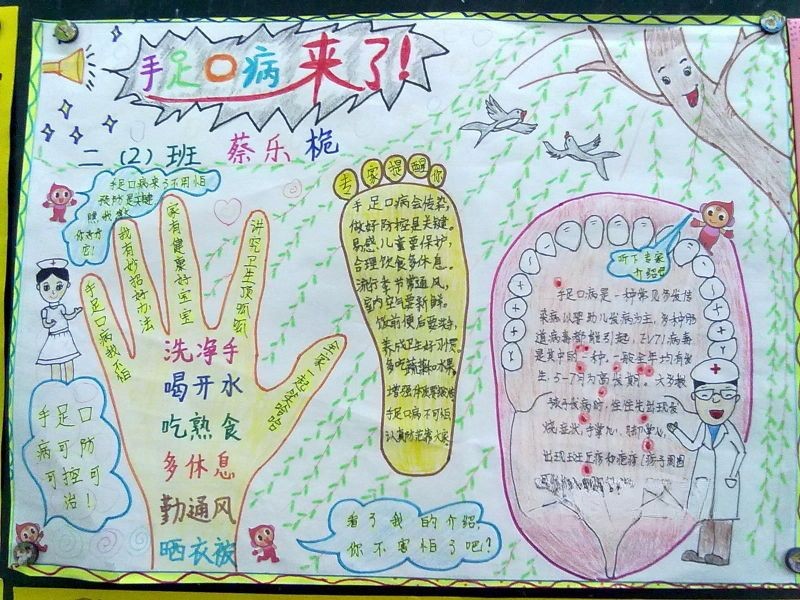 手足口病来了!
二(2)班 蔡乐桅
手足口病来了不用怕
预防是关键
专家提醒你
手足口病会传染,
做好防控是关键。
易感儿童要保护,
合理饮食多休息。
流行季节常通风,
室内空气要新鲜。
饭前便后要洗手,
养成卫生好习惯。
多吃蔬菜和水果,
增强体质
手足口病不可怕
手足口病我不怕
我有妙招好办法
家有健康好宝宝
讲究卫生顶呱呱
洗净手
喝开水
吃熟食
多休息
勤通风
晒衣被
手足口
病可防
可控可
治!
看了我的介绍,
你不害怕了吧?
听下专家
介绍吧
手足口病是一种常见多发传
染病,以婴幼儿发病为主,多种肠
道病毒都能引起,EV71病毒
是其中的一种。一般全年均有发
生,5-7月为高发期。大多数
孩子发病时,往往先出现发
烧症状,手掌心、脚掌心
出现斑丘疹和疱疹